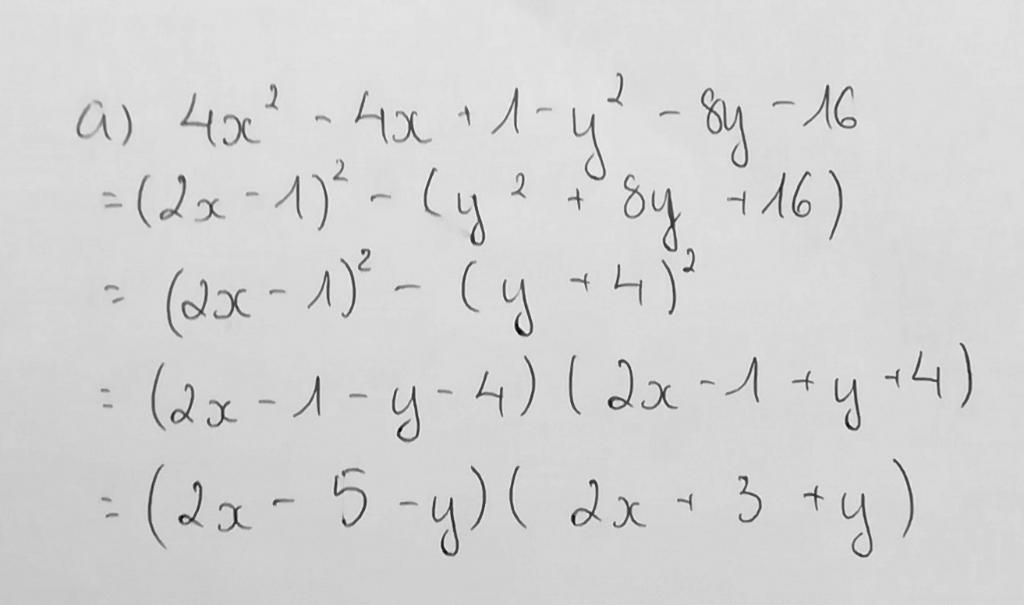 a) 4x² - 4x + 1 - y² - 8y - 16
= (2x - 1)² - (y² + 8y + 16)
= (2x - 1)² - (y + 4)²
= (2x - 1 - y - 4) (2x - 1 + y + 4)
= (2x - 5 - y) (2x + 3 + y)